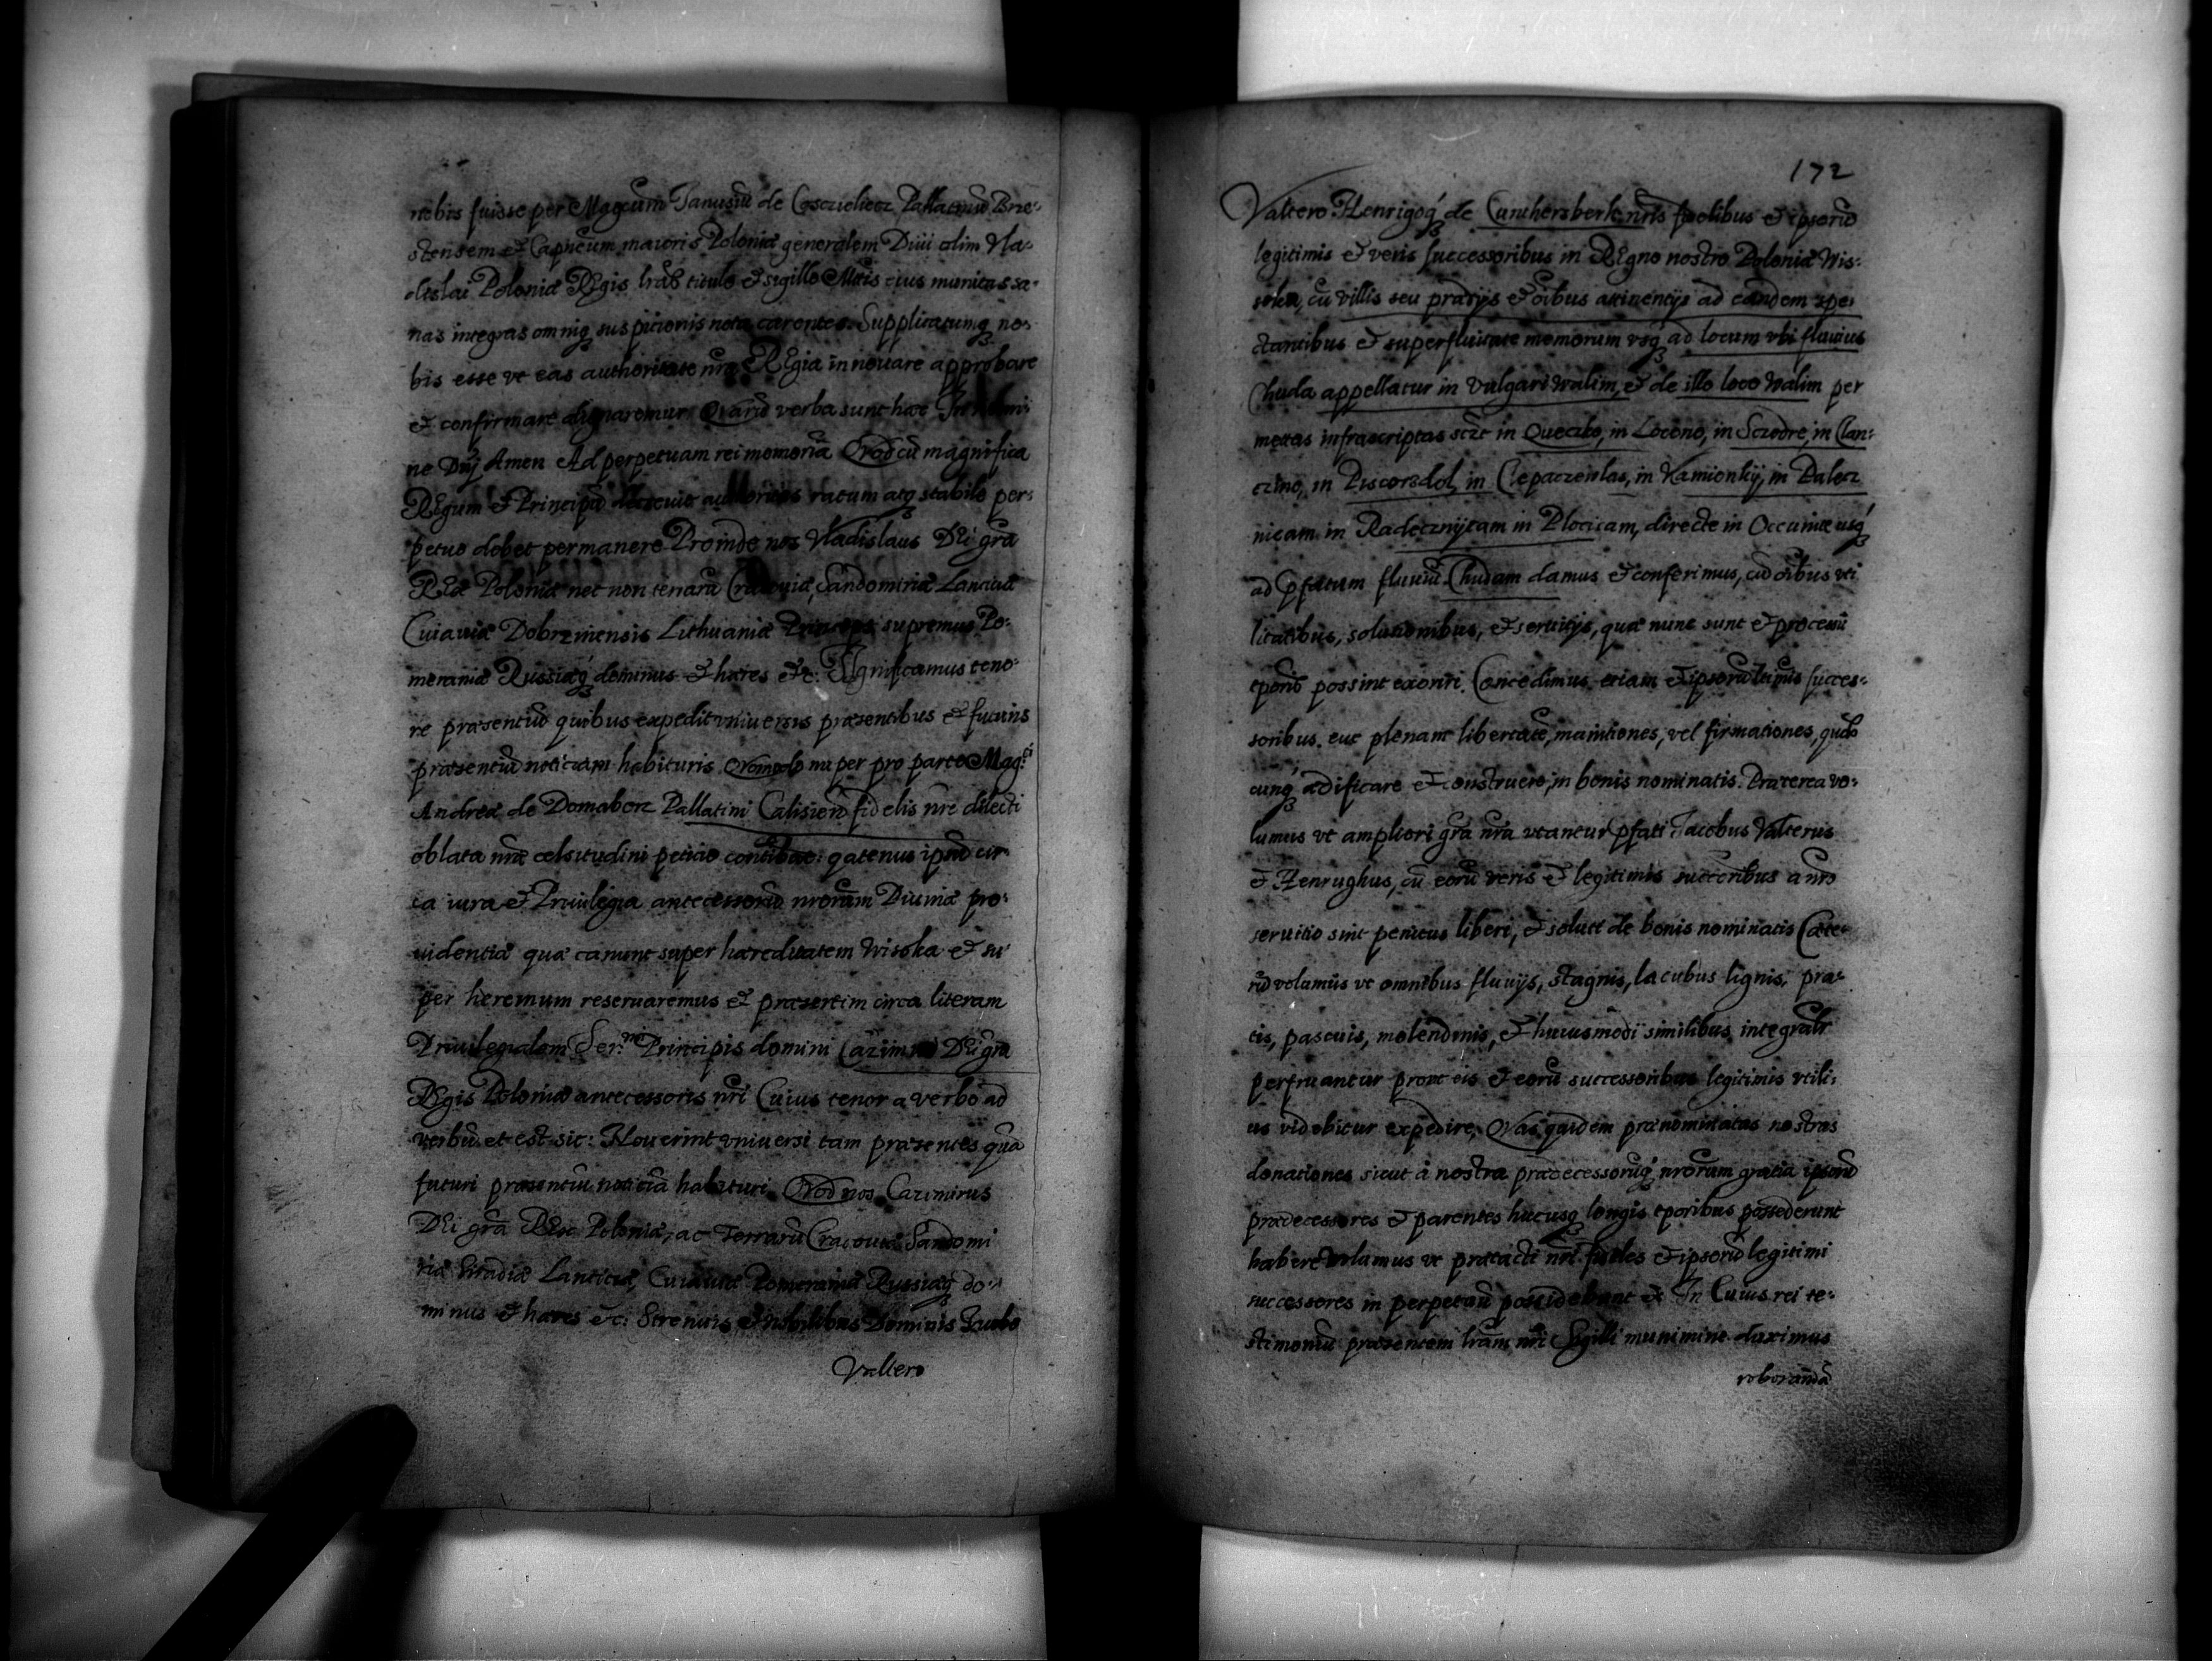 nobis fuisse per Magcum Janusiū de Coscieliecz Pallatinū Brze-
stensem et Capneum maioris Poloniæ generalem Diui olim Vla-
dislai Poloniæ Regis lras titulo et sigillo Mttis eius munitas sa-
nas integras omniq suspicionis nota carentes. Supplicatumq no-
bis esse vt eas authoritate nra Regia innouare approbare
et confirmare dignaremur Quarū verba sunt hæc In nomi-
ne Dnj Amen Ad perpetuam rei memoriā Quod cū magnifica
Regum et Principū decreuit authoritas ratum atq stabile per-
petuo debet permanere Proinde nos Vladislaus Dei gra
Rex Poloniæ nec non terrarū Cracouiæ, Sandomiriæ Lanciciæ
Cuiauiæ Dobrzinensis Lithuaniæ Princeps supremus Po-
meraniæ Russiæq dominus et hæres etc. Significamus teno-
re præsentiū quibus expedit vniuersis præsentibus et futuris
præsentiū noticiam habituris Quomodo nuper pro parte Mag:ci
Andreæ de Domaborz Pallatini Calisien̄ fidelis nre dilecti
oblata nræ celsitudini peticio continebat: qatenus ipsū cir-
ca iura et Priuilegia antecessorū nrorum Diuina pro-
uidentia quæ canunt super hæreditatem Wisoka et su-
per heremum reseruaremus et præsertim circa literam
Priuilegialem Ser.mi Principis domini Cazimiri Dei gra
Regis Poloniæ antecessoris nri Cuius tenor a verbo ad
verbū et est sic: Nouerint vniuersi tam præsentes quā
futuri præsentiū noticiā habituri Quod nos Cazimirus
Dei gra Rex Poloniæ, ac Terrarū Cracouiæ Sandomi
riæ Siradiæ Lanticiæ, Cuiauiæ Pomeraniæ Russiæq do-
minus et hæres etc: Strenuis et nobilibus Dominis Jacobo
Valtero
172
Valtero Henrigoq de Cunthersberk nris fidelibus et ipsorū
legitimis et veris successoribus in Regno nostro Poloniæ Wis-
soka, cū villis seu prædijs et oibus attinentijs ad eandem spe-
ctantibus et superfluitate memorum vsq ad locum vbi fluuius
Chuda appellatur in vulgari Walim, et de illo loco Walim per
metas infrascriptas sczt in Queczko, in Loceno, in Sczodre, in Clan-
czino, in Piscorzdol, in Clepaczewlas, in Kamionkij, in Palecz
nicam in Radecznijcam in Plocicam, directe in Occunite usq
ad pfatum fluuiū Chudam damus et conferimus, cū oibus vti
litatibus, solutionibus, et seruitijs, quæ nunc sunt et processū
tporis possint exoriri. Concedimus etiam et ipsorū ltimis succes-
soribus. euc plenam libertatē, munitiones, vel firmationes, qudo
cunq ædificare et construere, in bonis nominatis. Præterea vo-
lumus vt ampliori gra nra vtantur pfati Jacobus Valterus
et Henrughus, cū eorū veris et legitimis succoribus a nro
seruitio sint penitus liberi, et soluti de bonis nominatis Cæte-
rū volumus vt omnibus fluuijs, stagnis, lacubus lignis, pra-
tis, pascuis, molendinis, et huiusmodi similibus integralr
perfruantur prout eis et eorū successoribus legitimis vtili-
us videbitur expedire, Quas quidem prænominatas nostras
donationes sicut a nostra prædecessorūq nrorum gratia ipsorū
prædecessores et parentes hucusq longis tporibus possederunt
habere volumus vt prætacti nri fideles et ipsorū legitimi
successores in perpetuū possidebunt et In Cuius rei te-
stimoniū præsentem lram nri Sigilli munimine duximus
roborandā